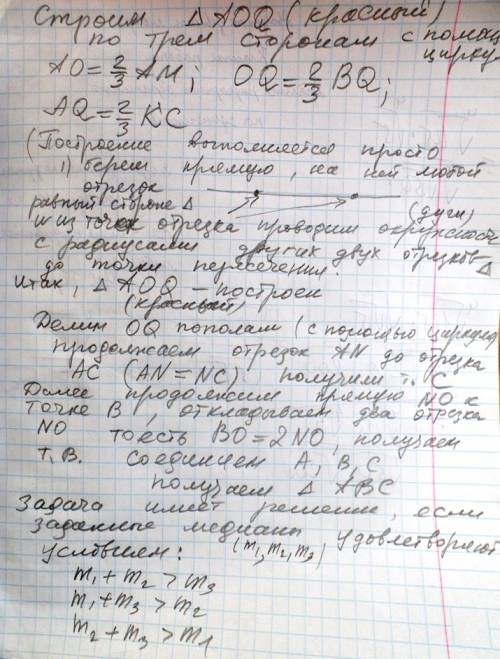 Строим △AOQ (красный)
по трем сторонам с помощ
цирку
AO=2/3 AM; OQ=2/3 BQ;
AQ=2/3 KC
(Построение выполняется просто
1) берем прямую, на ней любой
отрезок
равный стороне △
(дуги)
и из точек отрезка проводим окружност
с радиусами других двух отрезков △
до точки пересечения.
Итак, △AOQ – построен
(красный)
Делим OQ пополам (с помощью циркуля)
продолжаем отрезок AN до отрезка
AC (AN=NC) получили т. C
Далее продолжим прямую NO к
точке B, откладываем два отрезка
NO тоесть BO=2NO, получаем
т. B. Соединяем A, B, C
получаем △ ABC
Задача имеет решение, если
заданные медианы удовлетворяют
условием: (m₁, m₂, m₃)
m₁ + m₂ > m₃
m₁ + m₃ > m₂
m₂ + m₃ > m1